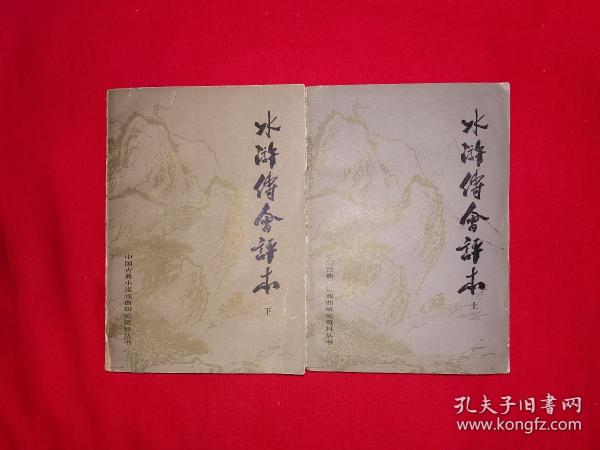 水浒傳會評本
下
中国古典小说戏曲研究资料丛书
水浒傳會評本
上
中国古典小说戏曲研究资料丛书
孔夫子旧书网
www.kongfz.com